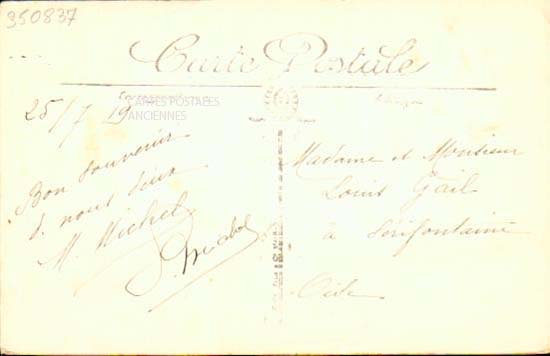 350837
Carte Postale
CARTES POSTALES
ANCIENNES
25/7 19
Bon souvenir
d. nous deux
M. Michel
Madame et Monsieur
Louis Gail
à Sérifontaine
Oise